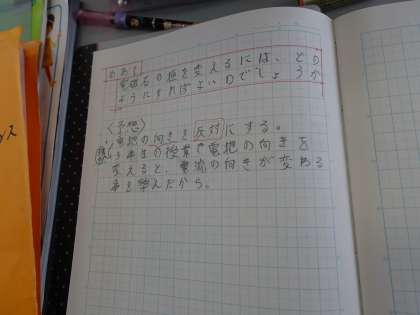 めあて
電磁石の極を変えるには、どの
ようにすればよいのでしょうか
〈予想〉
・電池の向きを反対にする。
4年生の授業で電池の向きを
変えると、電流の向きが変わる
事を学んだから。
ス